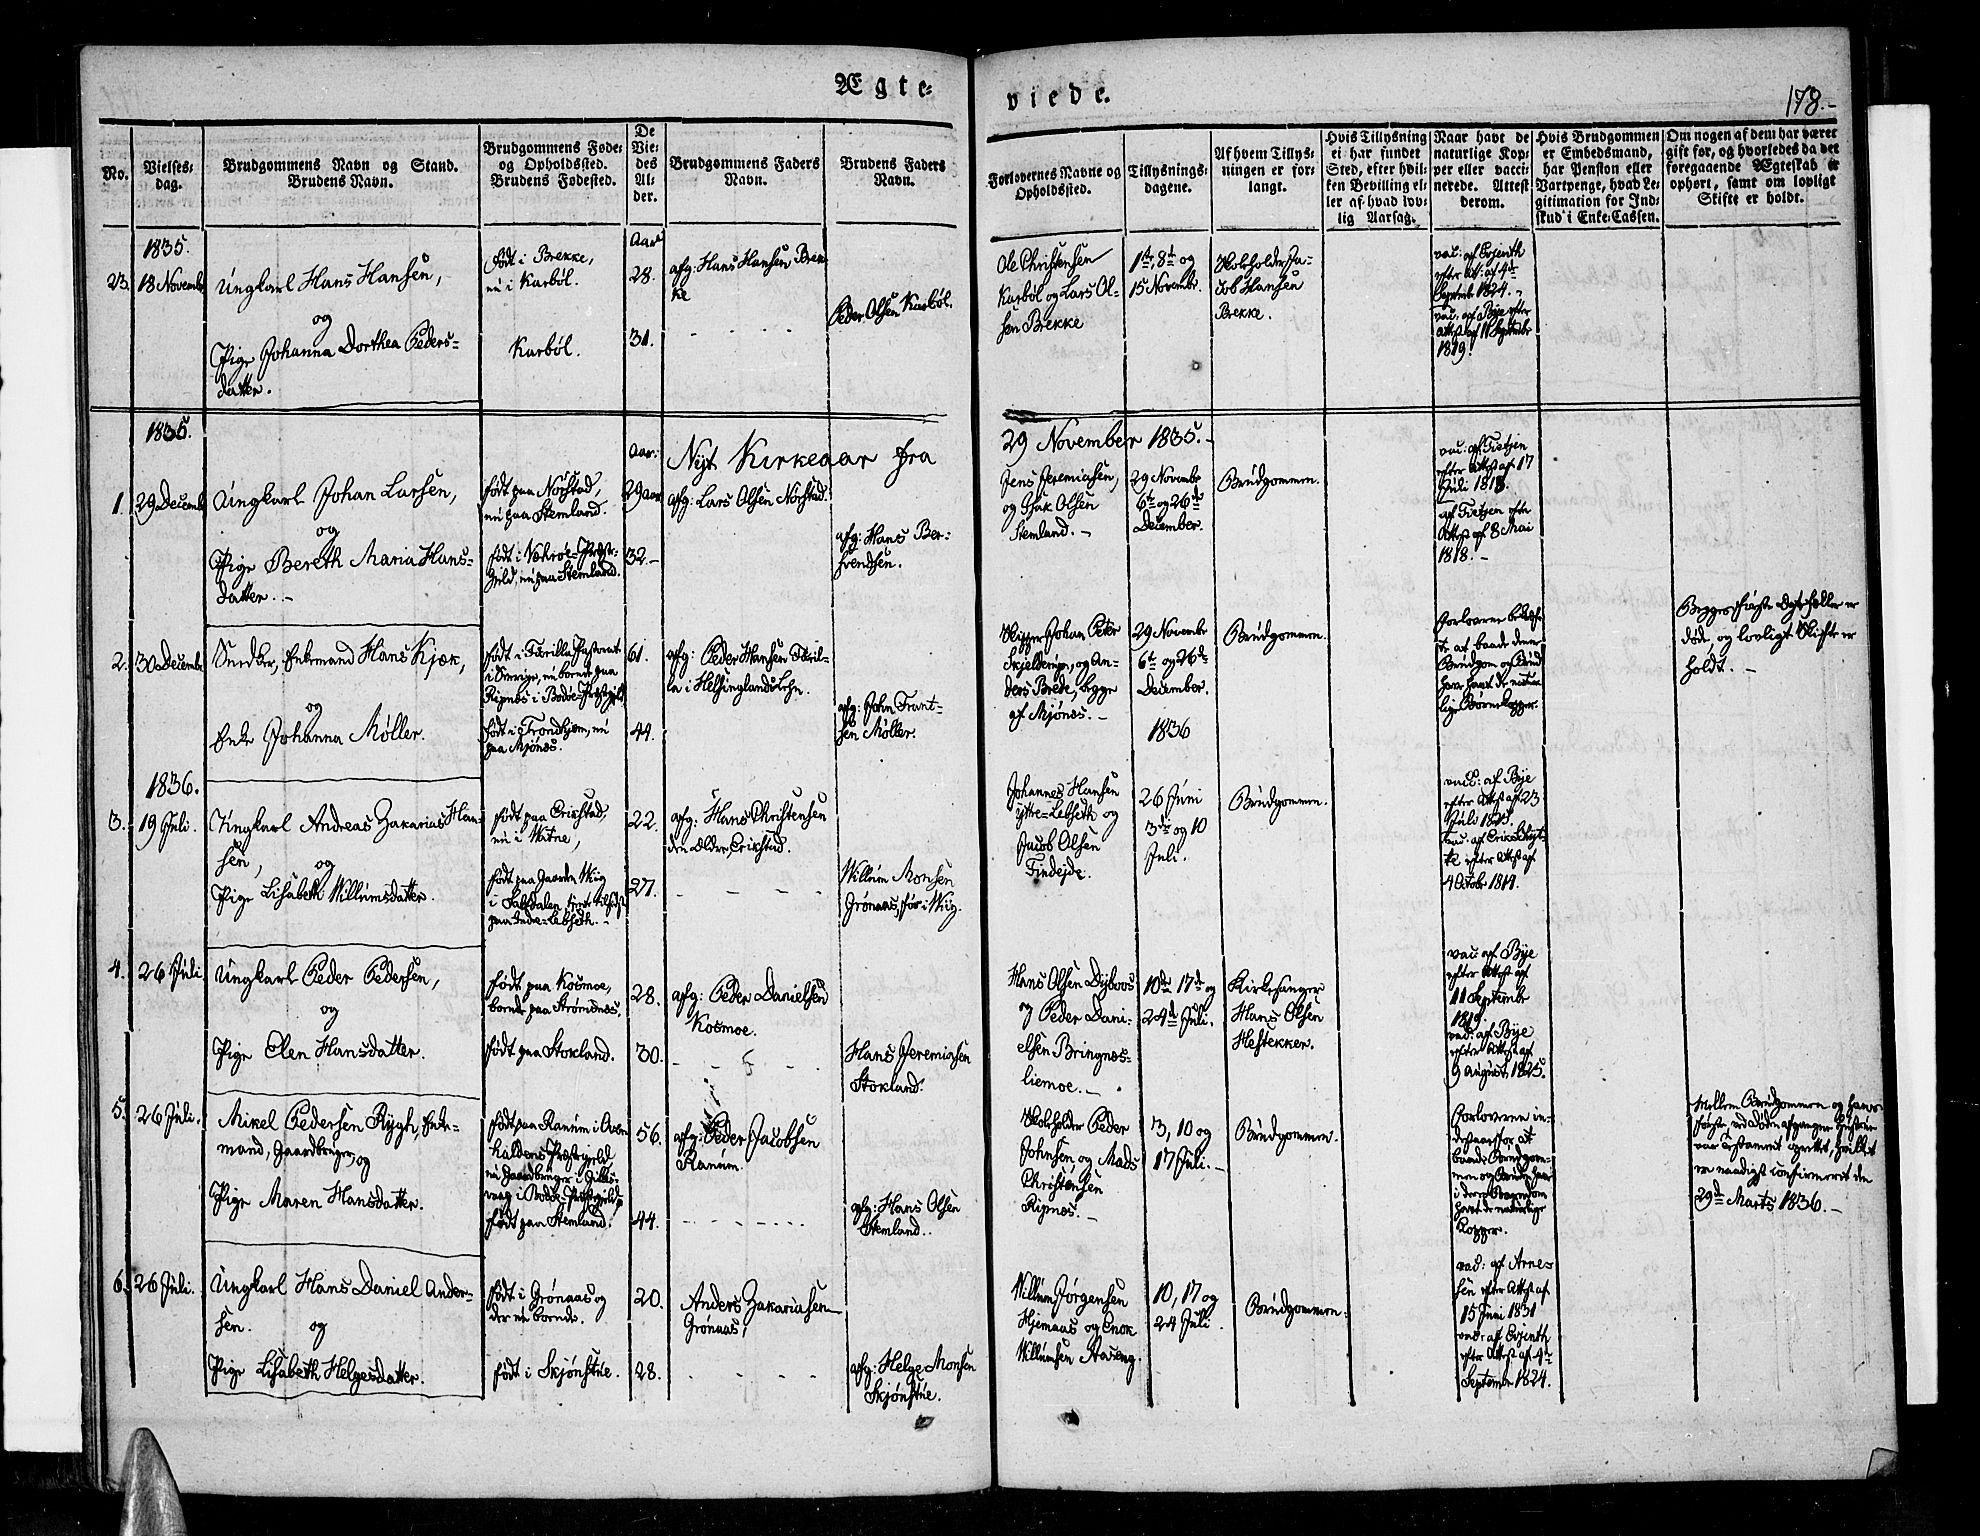 Ægte-
viede.
178.-
No.
Vielses-
dag.
Brudgommens Navn og Stand.
Brudens Navn.
Brudgommens Føde-
og Opholdssted.
Brudens Fødested.
De
Vie-
des
Al-
der.
Brudgommens Faders
Navn.
Brudens Faders
Navn.
Forlovernes Navne og
Opholdssted.
Tillysnings-
dagene.
Af hvem Tillys-
ningen er for-
langt.
Hvis Tillysning
ei har fundet
Sted, efter hvil-
ken Bevilling el-
ler af hvad lov-
lig Aarsag.
Naar havt de
naturlige Kop-
per eller vacci-
nerede. Attest
derom.
Hvis Brudgommen
er Embedsmand,
har Pension eller
Vartpenge, hvad Le-
gitimation for Ind-
skud i Enke-Cassen.
Om nogen af dem har været
gift før, og hvorledes da det
foregaaende Ægteskab er
ophørt, samt om lovligt
Skifte er holdt.
1835.
23.
18 Novemb
Ungkarl Hans Hansen,
og
Pige Johanna Dorthea Peders-
datter.
født i Brekke,
nu i Karbøl.
Karbøl.
Aar
28.
31.
afg: Hans Hansen Brek
ke
Peder Olsen Karbøl.
Ole Christensen
Karbøl og Lars Ol-
sen Brekke
1te, 8de og
15 Novembr.
Huusholder Ja-
cob Hansen
Brekke.
vac: af Evjenth
efter Att: af 4de
September 1824.
vac: af Bye efter
Attest af 11 Septembr
1819.
1835.
Nyt Kirkeaar fra
29 November 1835.-
1.
29 Decemb
Ungkarl Johan Larsen,
og
Pige Bereth Maria Hans-
datter.-
født paa Norstad,
nu paa Stemland.
født i Præste-
geld, nu paa Stemland.
Aar:
29 aar
32.-
afg: Lars Olsen Norstad.
afg: Hans Ber-
hrendsen.
Jens Jeremiasen,
og Isak Olsen
Stemland.-
29 Novembr
6te og 26de
December.
Brudgommen.
vac: af Tietjen
efter Attest af 17
Juli 1818.
af Tietjen efter
Attest af 8 Mai
1818.-
2.
30 Decemb.
Snedker, Enkemand Hans Kjæk,
og
Enke Johanna Møller.
i Sverige, nu boende paa
Ripnæs i Bodøe-Præstegjeld
født i Trondhjem, nu
paa Mjønæs.
61.
44.
afg: Peder Hansen
la i Helsinglands Lehn.
afg: John Frant-
sen Møller.
Skipper Johan Peter
Skjelderup, og An-
ders Brede, begge
af Mjønæs.-
29 Novembr
6te og 26de
December.
1836
Brudgommen.
Forloverne bekræf-
te at baade denne
Brudgom og Brud
have havt de natur-
lige Børnekopper.
Begges første Ægtefæller er
døde, og lovligt Skifte er
holdt.-
1836.
3.
19 Juli.
Ungkarl Andreas Zakarias Han-
sen,
og
Pige Lisabeth Willumsdatter.
født paa Erikstad,
nu i Watne,
født paa Gaarden Wiig
i Saltdalen,
paa Indre-Lebseth.-
22.
27.
afg: Hans Christensen
den Ældre, Erikstad.
Willum Monsen
Grønaas, før i Wiig.
Johannes Hansen
Yttre-Lebseth og
Jacob Olsen
Findejde.
26 Juni
3die og 10
Juli.
Brudgommen.
vac: af Bye
efter Attest af 23
Juli 1825.
vac: af Erik Schyt-
te efter Attest af
4 Octobr 1814.
4.
26 Juli
Ungkarl Peder Pedersen,
og
Pige Elen Hansdatter.
født paa Kosmoe,
boende paa Strømsnæs.
født paa Stokland.
28.
30.
afg: Peder Danielsen
Kosmoe.
Hans Jeremiasen
Stokland.
Hans Olsen Dybvos
og Peder Dani-
elsen Bringnæs-
liemoe.-
10de, 17de og
24de Juli.
Kirkesanger
Hans Olsen
Hestekker.
vac: af Bye
efter Attest af
11 Septembr
1819.
vac: af Bye
efter Attest af
9 August 1825.
5.
26 Juli.
Mikel Pedersen Rygh, Enke-
mand, Gaardbruger, og
Pige Maren Hansdatter.
født paa Ranum i Over
haldens Præstegjeld,
nu Gaardbruger i Gilles-
vaag i Bodøe-Præstegjeld
født paa Stemland.
56.
44.
afg: Peder Jacobsen
Ranum.
afg: Hans Olsen
Stemland.
Huusholder Peder
Johnsen, og Mads
Christensen
Ripnæs.-
3, 10 og
17 Juli.-
Brudgommen.
Forloverne in-
destaar for at
baade Brudgom-
men og Bruden har
i deres Barndom
havt de naturlige
Kopper.
Mellem Brudgommen og hans
første ved Døden afgangne Hustrue
var Testament oprettet, hvilket
er naadigst confirmeret den
29de Marts 1836.-
6.
26 Juli.
Ungkarl Hans Daniel Ander-
sen.
og
Pige Lisabeth Helgesdatter.
født i Grønaas og
der nu boende.
født i Skjønstue.
20.
28.
Anders Zakariasen
Grønaas,
afg: Helge Monsen
Skjønstue.
Willum Jørgensen
Hjemaas og Enok
Willumsen Aaseng.
10, 17 og
24 Juli
Brudgommen.
vac: af Arnes
sen efter Attest af
15 Juni 1831
vac: af Evjenth
efter Attest af 4de
September 1824.